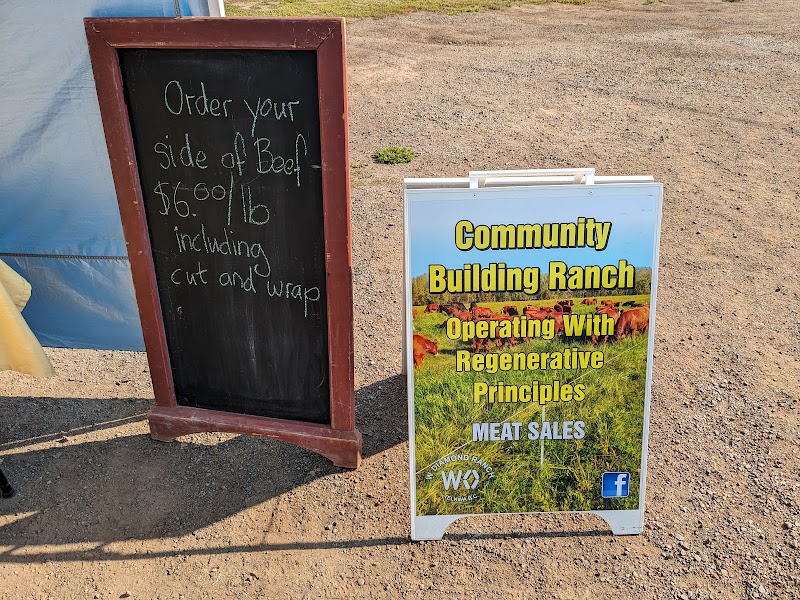 Order your
side of Beef
$6.00/lb
including
cut and wrap
Community
Building Ranch
Operating With
Regenerative
Principles
MEAT SALES
W DIAMOND RANCH
TELKWA B.C.
f